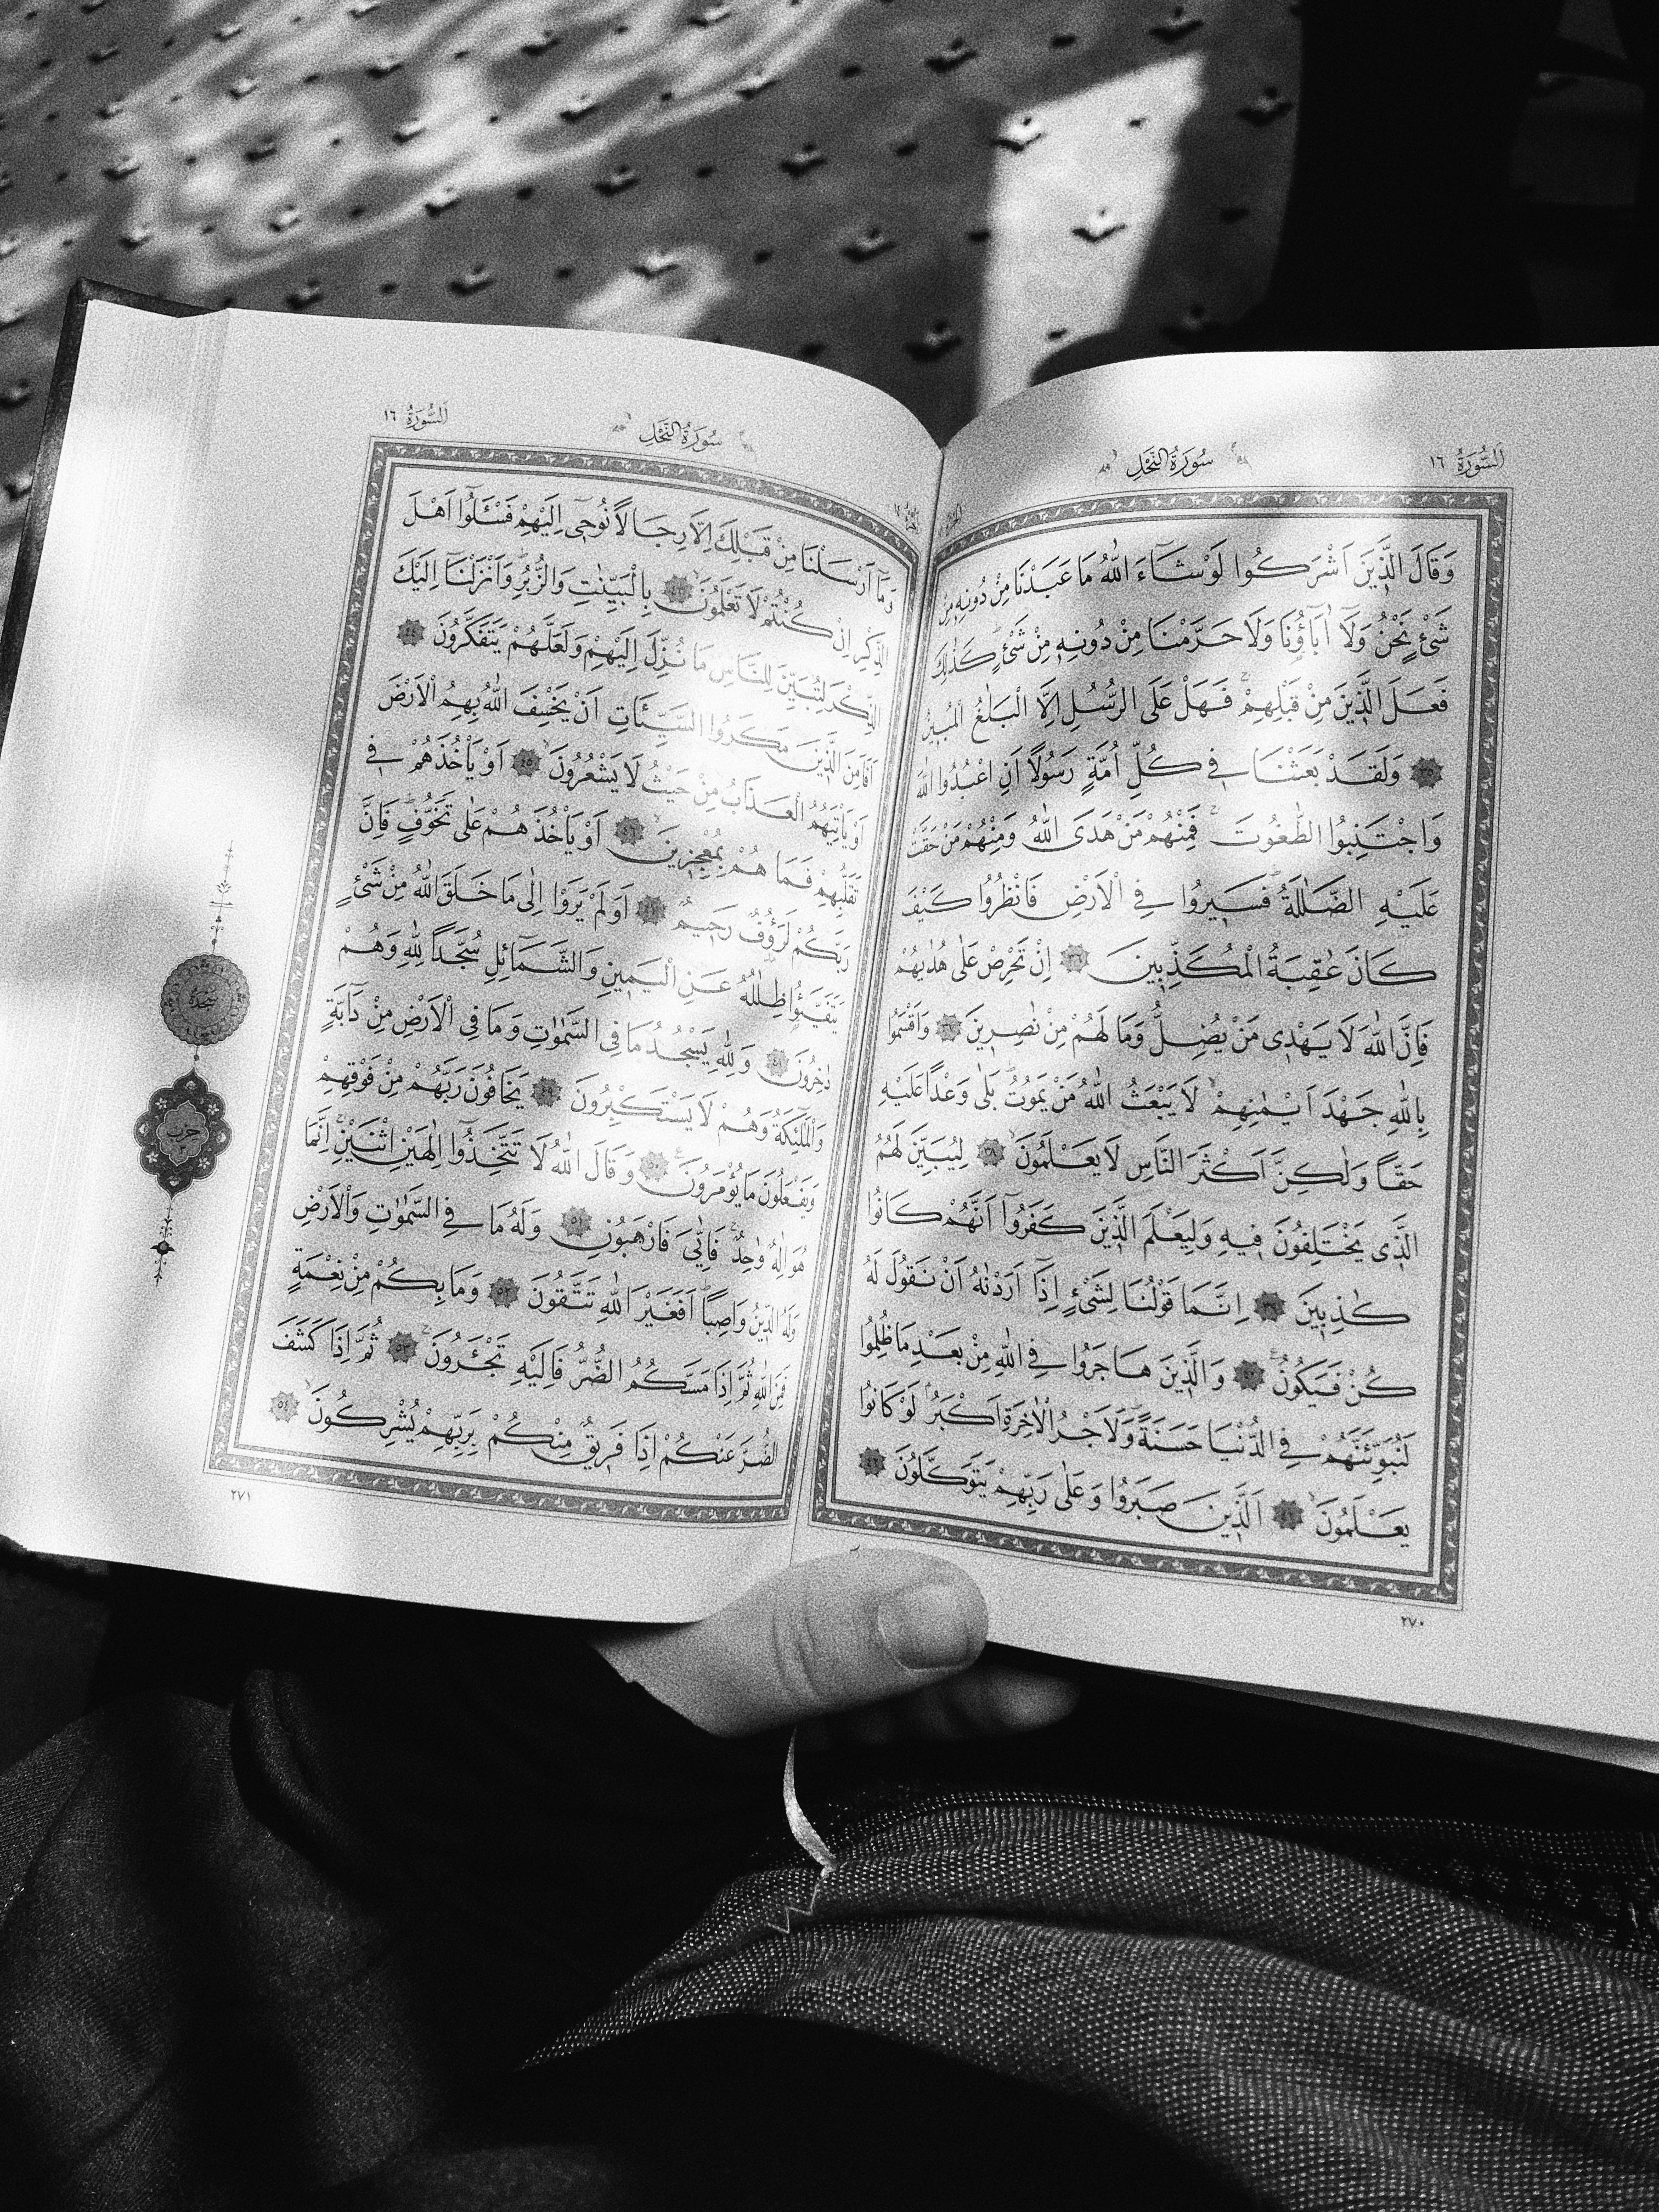 اَلسُّورَةُ ١٦
سُورَةُ النَّحْلِ
وَقَالَ الَّذِينَ اَشْرَكُوا لَوْ شَٓاءَ اللّٰهُ مَا عَبَدْنَا مِنْ دُونِهِ مِنْ
شَيْءٍ نَحْنُ وَلَٓا اٰبَٓاؤُ۬نَا وَلَا حَرَّمْنَا مِنْ دُونِهِ مِنْ شَيْءٍۜ كَذٰلِكَ
فَعَلَ الَّذِينَ مِنْ قَبْلِهِمْۚ فَهَلْ عَلَى الرُّسُلِ اِلَّا الْبَلَاغُ الْمُبِينُ
٣٥ وَلَقَدْ بَعَثْنَا فِي كُلِّ اُمَّةٍ رَسُولًا اَنِ اعْبُدُوا اللّٰهَ
وَاجْتَنِبُوا الطَّاغُوتَۚ فَمِنْهُمْ مَنْ هَدَى اللّٰهُ وَمِنْهُمْ مَنْ حَقَّتْ
عَلَيْهِ الضَّلَالَةُۜ فَسِيرُوا فِي الْاَرْضِ فَانْظُرُوا كَيْفَ
كَانَ عَاقِبَةُ الْمُكَذِّبِينَ ٣٦ اِنْ تَحْرِصْ عَلٰى هُدٰيهُمْ
فَاِنَّ اللّٰهَ لَا يَهْدِي مَنْ يُضِلُّ وَمَا لَهُمْ مِنْ نَاصِرِينَ ٣٧ وَاَقْسَمُوا
بِاللّٰهِ جَهْدَ اَيْمَانِهِمْۙ لَا يَبْعَثُ اللّٰهُ مَنْ يَمُوتُۜ بَلٰى وَعْدًا عَلَيْهِ
حَقًّا وَلٰكِنَّ اَكْثَرَ النَّاسِ لَا يَعْلَمُونَۙ ٣٨ لِيُبَيِّنَ لَهُمُ
الَّذِي يَخْتَلِفُونَ فِيهِ وَلِيَعْلَمَ الَّذِينَ كَفَرُٓوا اَنَّهُمْ كَانُوا
كَاذِبِينَ ٣٩ اِنَّمَا قَوْلُنَا لِشَيْءٍ اِذَٓا اَرَدْنَاهُ اَنْ نَقُولَ لَهُ
كُنْ فَيَكُونُ۟ ٤٠ وَالَّذِينَ هَاجَرُوا فِي اللّٰهِ مِنْ بَعْدِ مَا ظُلِمُوا
لَنُبَوِّئَنَّهُمْ فِي الدُّنْيَا حَسَنَةًۜ وَلَاَجْرُ الْاٰخِرَةِ اَكْبَرُۢ لَوْ كَانُوا
يَعْلَمُونَۙ ٤١ اَلَّذِينَ صَبَرُوا وَعَلٰى رَبِّهِمْ يَتَوَكَّلُونَ ٤٢
٢٧٠
سُورَةُ النَّحْلِ
اَلسُّورَةُ ١٦
وَمَٓا اَرْسَلْنَا مِنْ قَبْلِكَ اِلَّا رِجَالًا نُوحِٓي اِلَيْهِمْ فَسْـَٔلُٓوا اَهْلَ
الذِّكْرِ اِنْ كُنْتُمْ لَا تَعْلَمُونَۙ ٤٣ بِالْبَيِّنَاتِ وَالزُّبُرِۜ وَاَنْزَلْنَٓا اِلَيْكَ
الذِّكْرَ لِتُبَيِّنَ لِلنَّاسِ مَا نُزِّلَ اِلَيْهِمْ وَلَعَلَّهُمْ يَتَفَكَّرُونَ ٤٤
اَفَاَمِنَ الَّذِينَ مَكَرُوا السَّيِّـَٔاتِ اَنْ يَخْسِفَ اللّٰهُ بِهِمُ الْاَرْضَ
اَوْ يَأْتِيَهُمُ الْعَذَابُ مِنْ حَيْثُ لَا يَشْعُرُونَۙ ٤٥ اَوْ يَأْخُذَهُمْ فِي
تَقَلُّبِهِمْ فَمَا هُمْ بِمُعْجِزِينَۙ ٤٦ اَوْ يَأْخُذَهُمْ عَلٰى تَخَوُّفٍۜ فَاِنَّ
رَبَّكُمْ لَرَؤُ۫فٌ رَحِيمٌ ٤٧ اَوَلَمْ يَرَوْا اِلٰى مَا خَلَقَ اللّٰهُ مِنْ شَيْءٍ
يَتَفَيَّؤُ۬ا ظِلَالُهُ عَنِ الْيَمِينِ وَالشَّمَٓائِلِ سُجَّدًا لِلّٰهِ وَهُمْ
دَاخِرُونَ ٤٨ وَلِلّٰهِ يَسْجُدُ مَا فِي السَّمٰوَاتِ وَمَا فِي الْاَرْضِ مِنْ دَٓابَّةٍ
وَالْمَلٰٓئِكَةُ وَهُمْ لَا يَسْتَكْبِرُونَ ٤٩ يَخَافُونَ رَبَّهُمْ مِنْ فَوْقِهِمْ
وَيَفْعَلُونَ مَا يُؤْمَرُونَ ٥٠ وَقَالَ اللّٰهُ لَا تَتَّخِذُٓوا اِلٰهَيْنِ اثْنَيْنِۚ اِنَّمَا
هُوَ اِلٰهٌ وَاحِدٌۚ فَاِيَّايَ فَارْهَبُونِ ٥١ وَلَهُ مَا فِي السَّمٰوَاتِ وَالْاَرْضِ
وَلَهُ الدِّينُ وَاصِبًاۜ اَفَغَيْرَ اللّٰهِ تَتَّقُونَ ٥٢ وَمَا بِكُمْ مِنْ نِعْمَةٍ
فَمِنَ اللّٰهِ ثُمَّ اِذَا مَسَّكُمُ الضُّرُّ فَاِلَيْهِ تَجْـَٔرُونَۚ ٥٣ ثُمَّ اِذَا كَشَفَ
الضُّرَّ عَنْكُمْ اِذَا فَرِيقٌ مِنْكُمْ بِرَبِّهِمْ يُشْرِكُونَۙ ٥٤
سَجْدَة
حِزْب
٢٧١